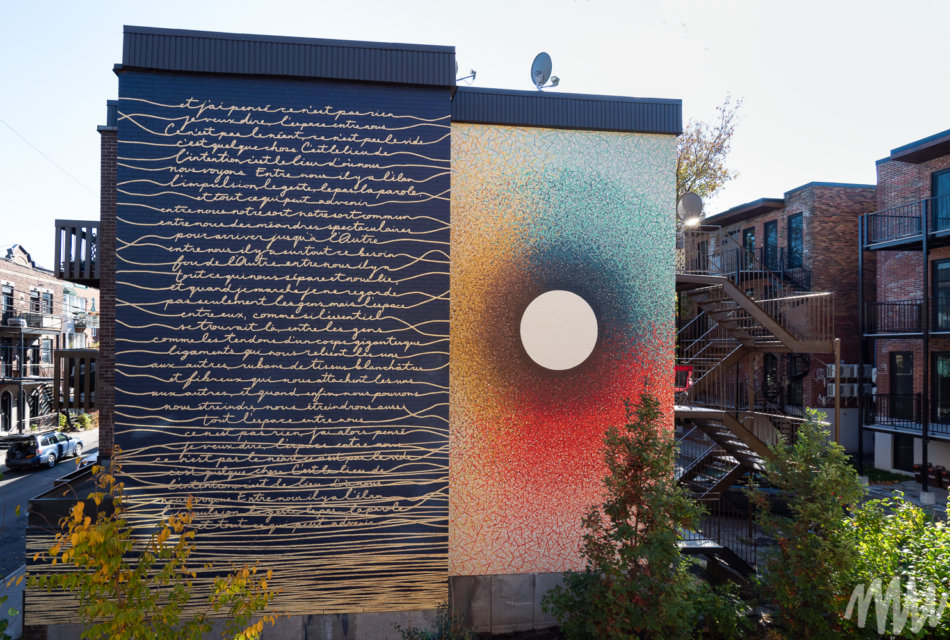 et j'ai pensé ce n'est pas rien
je veux dire l'espace entre nous
Ce n'est pas le néant ce n'est pas le vide
c'est quelque chose C'est le lieu de
l'intention c'est le lieu d'où nous
nous voyons Entre nous il y a l'élan
l'impulsion le geste le pas la parole
et tout ce qui peut advenir
entre nous notre sort notre sort commun
entre nous des méandres spectaculaires
pour arriver jusqu'à l'Autre
entre nous il y a surtout ce besoin
fou de l'Autre entre nous il y a
tout ce qui nous sépare et nous lie
et quand je marche je ne regarde
pas seulement les gens mais l'espace
entre eux, comme si l'essentiel
se trouvait là entre les gens
comme les tendons d'un corps gigantesque
ligaments qui nous relient les uns
aux autres rubans de tissus blanchâtres
et fébreux qui nous attachent les uns
aux autres et quand enfin nous pouvons
nous étreindre nous étreindrons aussi
tout l'espace entre nous
ce n'est pas rien j'ai alors pensé
je veux dire l'espace entre nous
ce n'est pas le néant ce n'est pas le vide
c'est quelque chose C'est le lieu de
l'intention c'est le lieu d'où nous
nous voyons Entre nous il y a l'élan
l'impulsion le geste le pas la parole
et tout ce qui peut advenir